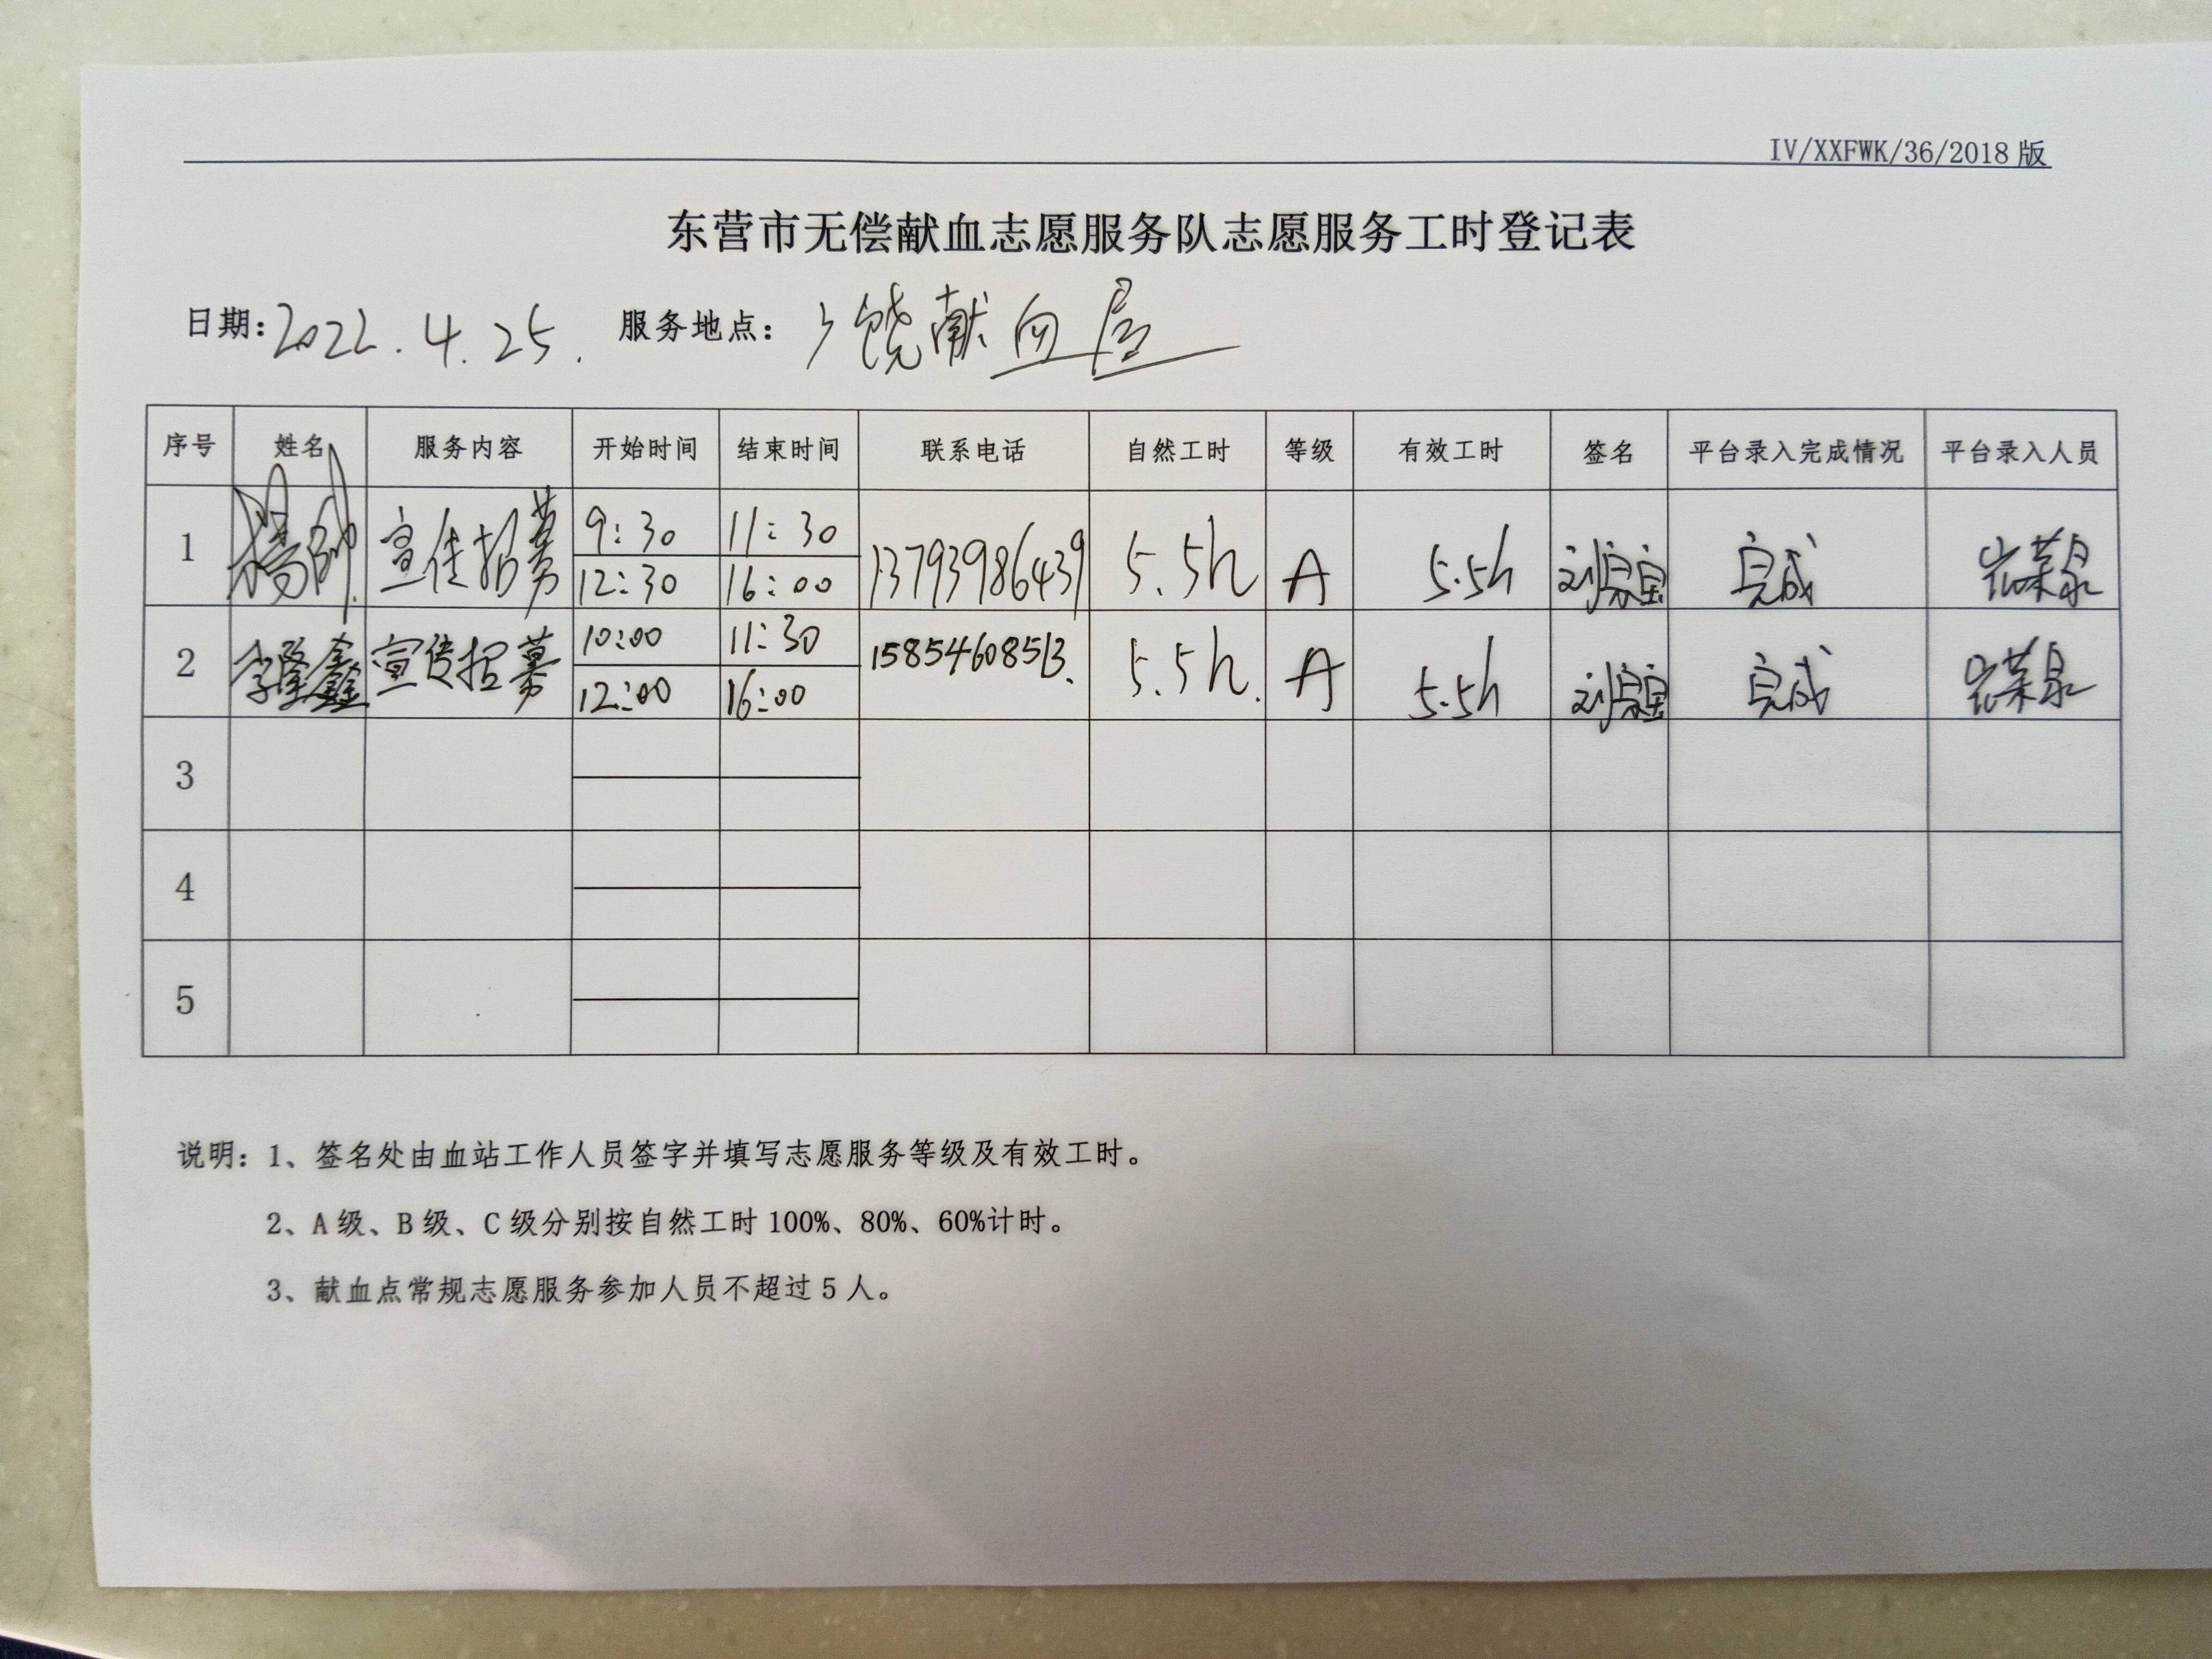 IV/XXFWK/36/2018 版
东营市无偿献血志愿服务队志愿服务工时登记表
日期: 2022.4.25. 服务地点: 广饶献血屋
序号 姓名 服务内容 开始时间 结束时间 联系电话 自然工时 等级 有效工时 签名 平台录入完成情况 平台录入人员
1 杨帅 宣传招募 9:30 11:30 13793986439 5.5h A 5.5h 完成
12:30 16:00
2 李隆鑫 宣传招募 10:00 11:30 15854608513. 5.5h. A 5.5h 完成
12:00 16:00
3
4
5
说明: 1、签名处由血站工作人员签字并填写志愿服务等级及有效工时。
2、A 级、B 级、C 级分别按自然工时 100%、80%、60%计时。
3、献血点常规志愿服务参加人员不超过 5 人。